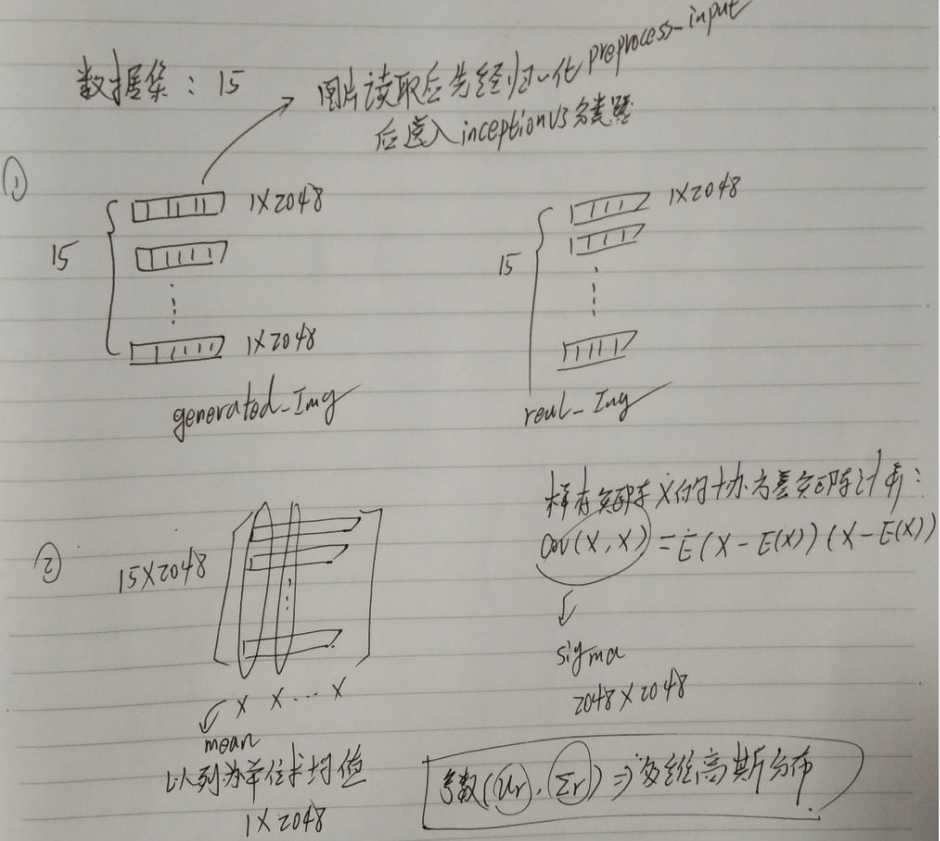 数据集：15
图片读取后先经归一化preprocess_input
后送入inceptionV3
①
15
1X2048
1X2048
generated_Img
15
1X2048
real_Img
②
15X2048
X X ... X
mean
以列为单位求均值
1X2048
样本矩阵X的协方差矩阵计算：
Cov(X,X)=E(X-E(X))(X-E(X))
sigma
2048X2048
参数(ur.Σr)⇒多维高斯分布